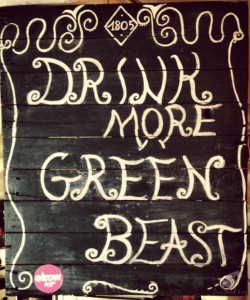 1805
DRINK
MORE
GREEN
BEAST
elrow